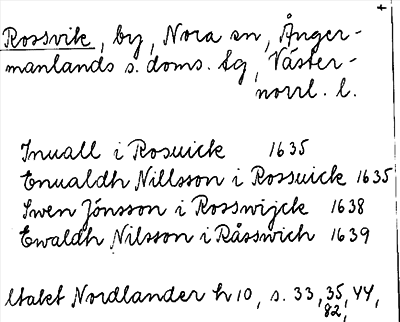 Rossvik, by, Nora sn, Ånger-
manlands s. doms. tg, Väster-
norrl. l.
Inuall i Rosuick 1635
Enualdh Nillsson i Rossuick 1635
Swen Jönsson i Rosswijck 1638
Ewaldh Nilsson i Råsswich 1639
Utakt Nordlander h 10, s. 33, 35, 44,
82,